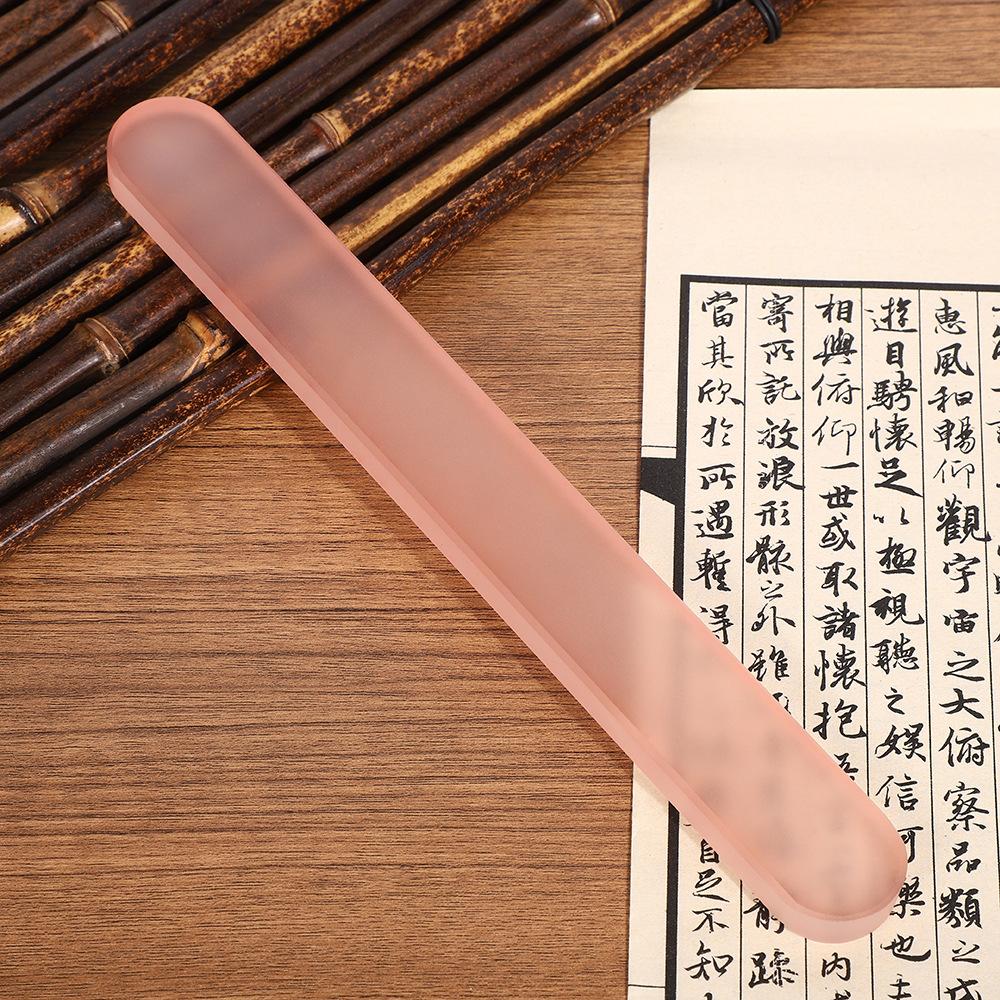 惠風和暢仰觀宇宙之大俯察品類之盛
遊目騁懷足以極視聽之娛信可樂也
相與俯仰一世或取諸懷抱悟內
寄所託放浪形骸之外雖靜躁
當其欣於所遇暫得自足不知